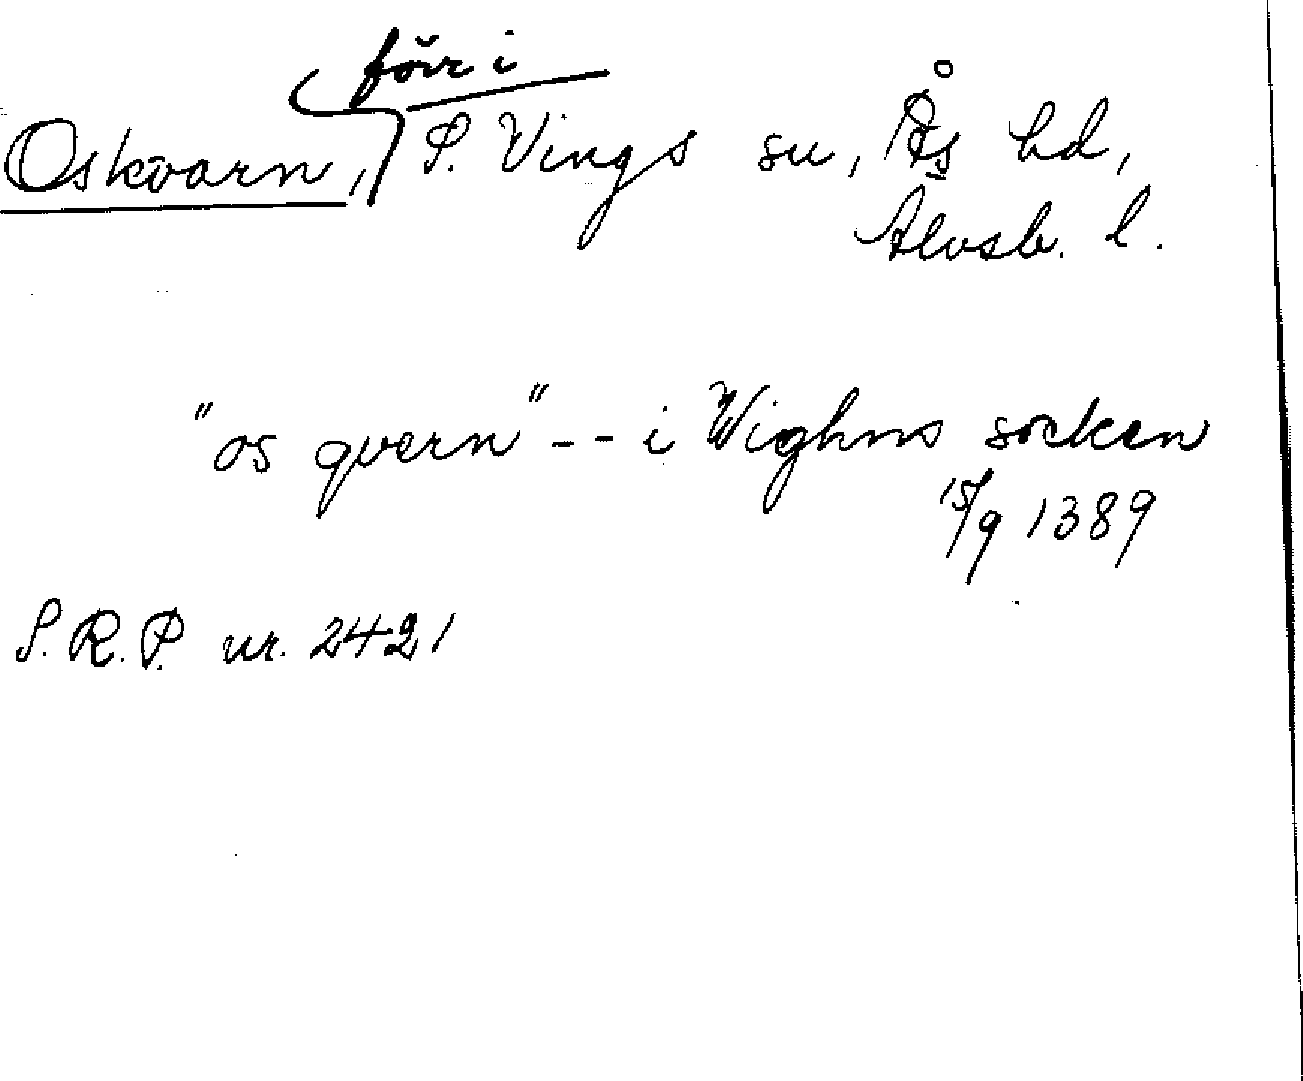 förr i
Oskvarn, S. Vings sn, Ås hd,
Älvsb. l.
"os qvern" -- i Wighns socken
15/9 1389
S.R.P. nr. 2421